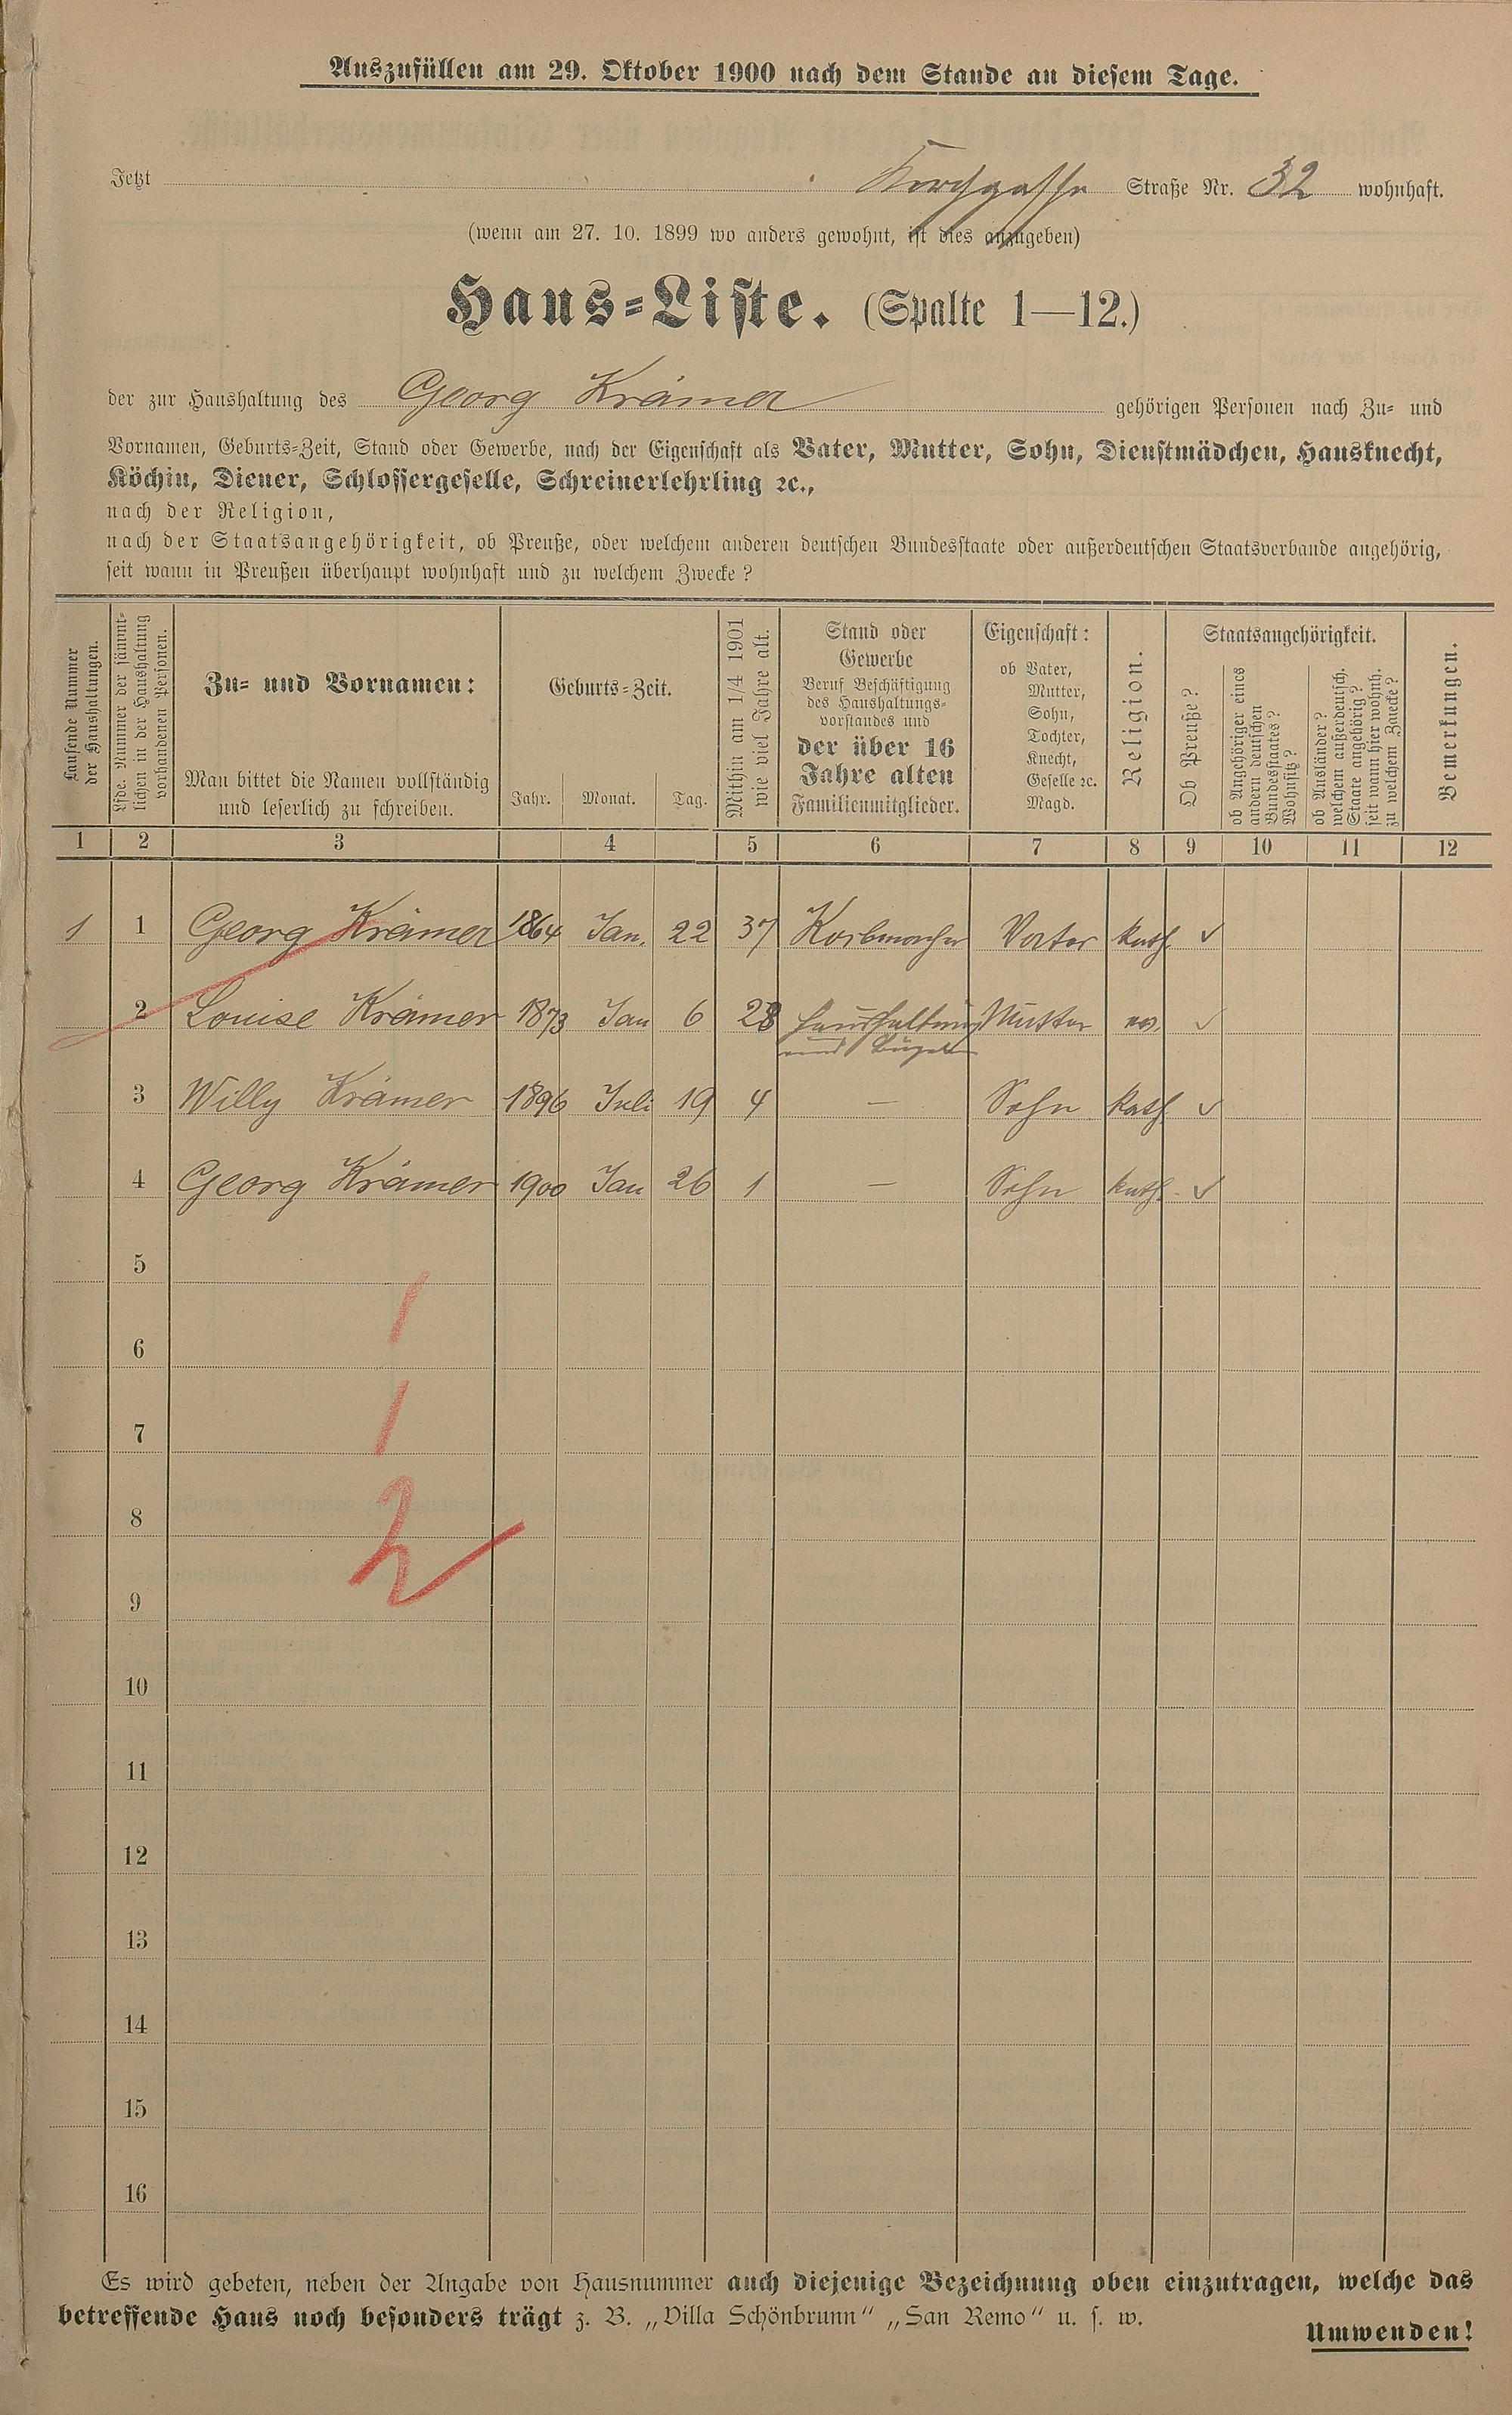 Auszufüllen am 29. Oktober 1900 nach dem Stande an diesem Tage.
Jetzt Kirchgasse Straße Nr. 32 wohnhaft.
(wenn am 27. 10. 1899 wo anders gewohnt, ist dies anzugeben)
Haus-Liste. (Spalte 1—12.)
der zur Haushaltung des Georg Krämer gehörigen Personen nach Zu- und
Vornamen, Geburts-Zeit, Stand oder Gewerbe, nach der Eigenschaft als Vater, Mutter, Sohn, Dienstmädchen, Hausknecht,
Köchin, Diener, Schlossergeselle, Schreinerlehrling ꝛc.,
nach der Religion,
nach der Staatsangehörigkeit, ob Preuße, oder welchem anderen deutschen Bundesstaate oder außerdeutschen Staatsverbande angehörig,
seit wann in Preußen überhaupt wohnhaft und zu welchem Zwecke?
Laufende Nummer
der Haushaltungen.
Lfde. Nummer der sämmt-
lichen in der Haushaltung
vorhandenen Personen.
Zu- und Vornamen:
Man bittet die Namen vollständig
und leserlich zu schreiben.
Geburts-Zeit.
Jahr. Monat. Tag.
Mithin am 1/4 1901
wie viel Jahre alt.
Stand oder
Gewerbe
Beruf Beschäftigung
des Haushaltungs-
vorstandes und
der über 16
Jahre alten
Familienmitglieder.
Eigenschaft:
ob Vater,
Mutter,
Sohn,
Tochter,
Knecht,
Geselle ꝛc.
Magd.
Religion.
Staatsangehörigkeit.
Ob Preuße?
ob Angehöriger eines
andern deutschen
Bundesstaates?
Wohnsitz?
ob Ausländer?
welchem außerdeutsch.
Staate angehörig?
seit wann hier wohnh.
zu welchem Zwecke?
Bemerkungen.
1 2 3 4 5 6 7 8 9 10 11 12
1 1 Georg Krämer 1864 Jan. 22 37 Korbmacher Vater kath. ✓
2 Louise Krämer 1873 Jan 6 28 Haushaltung Mutter ev. ✓
und Bügeln
3 Willy Krämer 1896 Juli 19 4 — Sohn kath. ✓
4 Georg Krämer 1900 Jan 26 1 — Sohn kath. ✓
5
1
6
1
7
8
2
9
10
11
12
13
14
15
16
Es wird gebeten, neben der Angabe von Hausnummer auch diejenige Bezeichnung oben einzutragen, welche das
betreffende Haus noch besonders trägt z. B. „Villa Schönbrunn“ „San Remo“ u. s. w.
Umwenden!